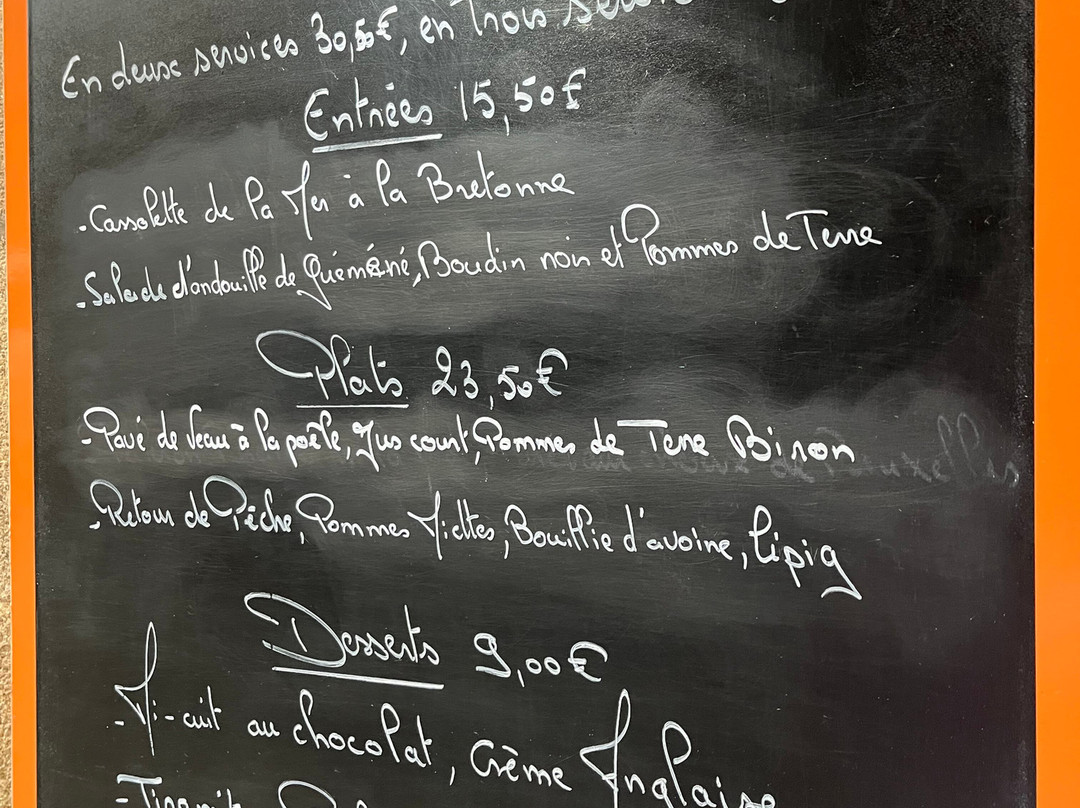 En deux services 30,50€, en Trois
Entrées 15,50€
- Cassolette de la Mer à la Bretonne
- Salade d'andouille de Guémené, Boudin noir et Pommes de Terre
Plats 23,50€
- Pavé de Veau à la poêle, Jus court, Pommes de Terre Biron
- Retour de Pêche, Pommes Miettes, Bouillie d'avoine, lipig
Desserts 9,00€
- Mi-cuit au chocolat, Crème Anglaise